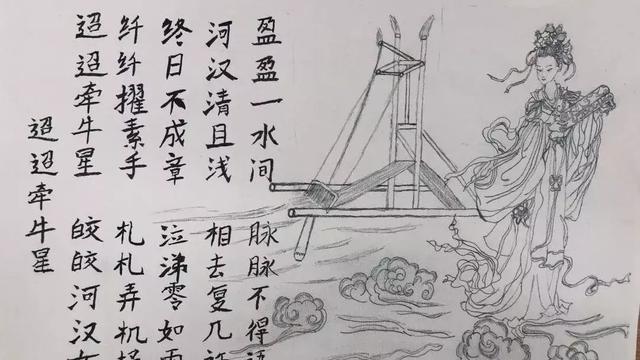 迢迢牵牛星
迢迢牵牛星 皎皎河汉女
纤纤擢素手 札札弄机杼
终日不成章 泣涕零如雨
河汉清且浅 相去复几许
盈盈一水间 脉脉不得语